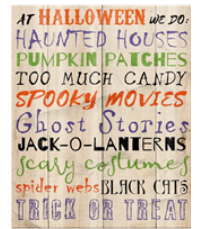 AT HALLOWEEN WE DO:
HAUNTED HOUSES
PUMPKIN PATCHES
TOO MUCH CANDY
SPOOKY MOVIES
Ghost Stories
JACK-O-LANTERNS
scary costumes
spider webs BLACK CATS
TRICK OR TREAT